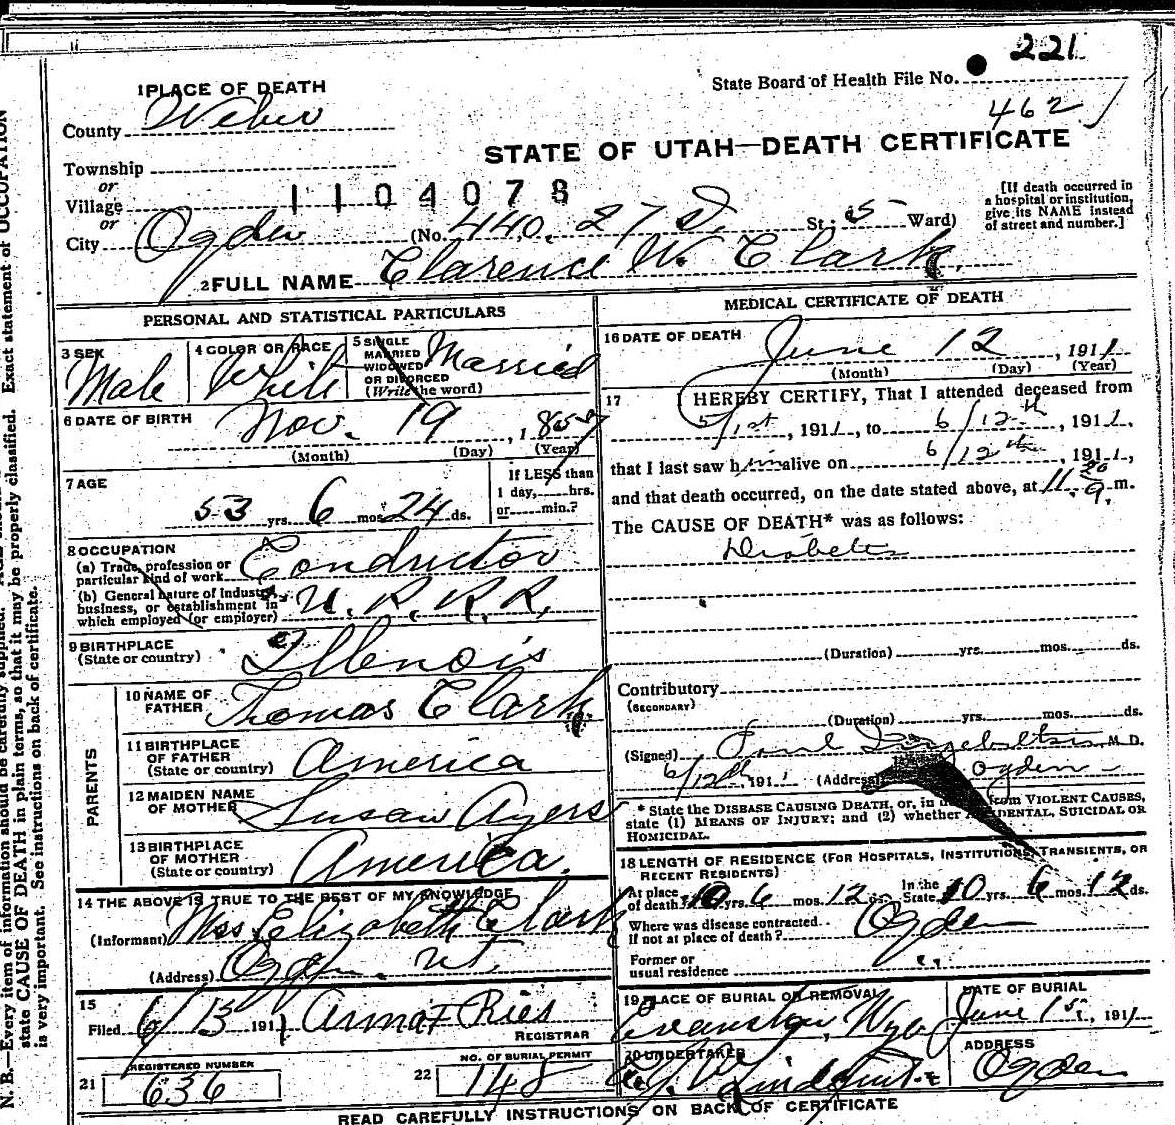 221
State Board of Health File No.
462
1 PLACE OF DEATH
County Weber
STATE OF UTAH—DEATH CERTIFICATE
Township
or
Village
1104078
or
City Ogden (No. 440. 27 St. St; 5 Ward)
[If death occurred in
a hospital or institution,
give its NAME instead
of street and number.]
2 FULL NAME Clarence W. Clark.
PERSONAL AND STATISTICAL PARTICULARS
3 SEX
Male
4 COLOR OR RACE
White
5 SINGLE
MARRIED
WIDOWED
OR DIVORCED
(Write the word)
Married
6 DATE OF BIRTH
Nov. 19, 1857
(Month) (Day) (Year)
7 AGE
53 yrs. 6 mos. 24 ds.
If LESS than
1 day, hrs.
or min.?
8 OCCUPATION
(a) Trade, profession or
particular kind of work Conductor
(b) General nature of industry,
business, or establishment in
which employed (or employer) U. P. R. R.
9 BIRTHPLACE
(State or country) Illenois
PARENTS
10 NAME OF
FATHER Thomas Clark
11 BIRTHPLACE
OF FATHER
(State or country) America
12 MAIDEN NAME
OF MOTHER Susan Ayers
13 BIRTHPLACE
OF MOTHER
(State or country) America.
14 THE ABOVE IS TRUE TO THE BEST OF MY KNOWLEDGE
(Informant) Mrs. Elizabeth Clark
(Address) Ogden. Ut.
15
Filed 6/13 1911 REGISTRAR
21 REGISTERED NUMBER
636
22 NO. OF BURIAL PERMIT
148
MEDICAL CERTIFICATE OF DEATH
16 DATE OF DEATH
June 12, 1911
(Month) (Day) (Year)
17 I HEREBY CERTIFY, That I attended deceased from
5/1st, 1911, to 6/12th, 1911,
that I last saw him alive on 6/12th, 1911,
and that death occurred, on the date stated above, at 11.20 a. m.
The CAUSE OF DEATH* was as follows:
Diabetes
(Duration) yrs. mos. ds.
Contributory
(SECONDARY)
(Duration) yrs. mos. ds.
(Signed) Paul M. D.
6/12th 1911 (Address) Ogden
* State the DISEASE CAUSING DEATH, or, in from VIOLENT CAUSES,
state (1) MEANS OF INJURY; and (2) whether ACCIDENTAL, SUICIDAL OR
HOMICIDAL.
18 LENGTH OF RESIDENCE (FOR HOSPITALS, INSTITUTIONS, TRANSIENTS, OR
RECENT RESIDENTS)
At place
of death 10 yrs. 6 mos. 12 ds.
In the
State 10 yrs. 6 mos. 12 ds.
Where was disease contracted
if not at place of death? Ogden
Former or
usual residence
19 PLACE OF BURIAL OR REMOVAL
Evanston, Wyo
DATE OF BURIAL
June 15, 1911
20 UNDERTAKER
ADDRESS
Ogden
READ CAREFULLY INSTRUCTIONS ON BACK OF CERTIFICATE
N. B.—Every item of information should be carefully supplied.
state CAUSE OF DEATH in plain terms, so that it may be properly classified. Exact statement of OCCUPATION
is very important. See instructions on back of certificate.